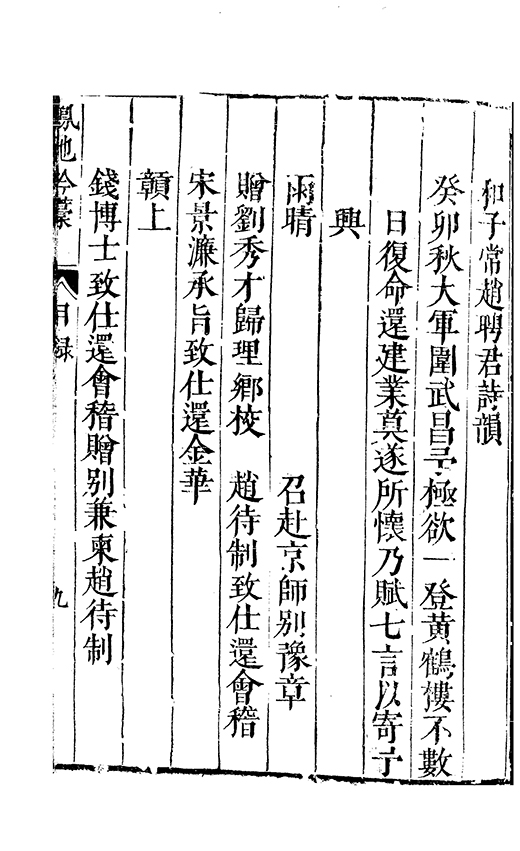 和子常趙聘君詩韻
癸卯秋大軍圍武昌予極欲一登黃鶴樓不數
日復命還建業莫遂所懷乃賦七言以寄予
興
雨晴 召赴京師別豫章
贈劉秀才歸理鄉校 趙待制致仕還會稽
宋景濂承旨致仕還金華
贛上
錢博士致仕還會稽贈別兼柬趙待制
鳳池吟藁 目録 九